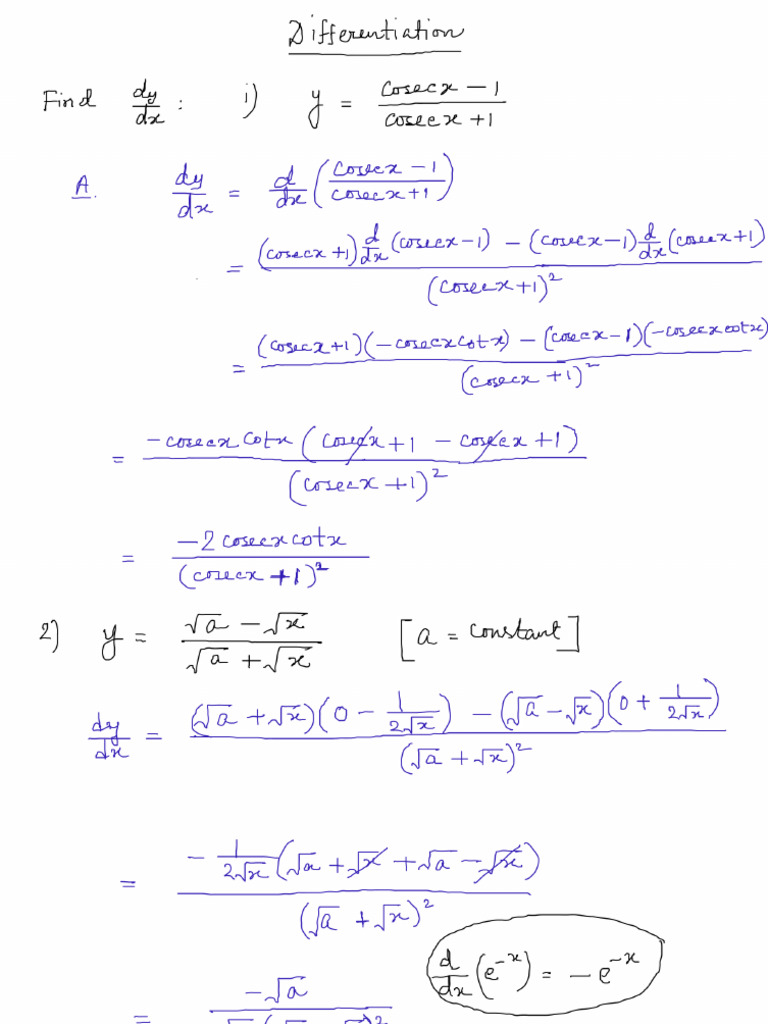 Differentiation
Find dy/dx : i) y = (cosecx − 1)/(cosecx + 1)
A. dy/dx = d/dx ((cosecx − 1)/(cosecx + 1))
= ((cosecx + 1) d/dx (cosecx − 1) − (cosecx − 1) d/dx (cosecx + 1))/(cosecx + 1)²
= ((cosecx + 1)(−cosecx cotx) − (cosecx − 1)(−cosecx cotx))/(cosecx + 1)²
= −cosecx cotx (cosecx + 1 − cosecx + 1)/(cosecx + 1)²
= −2 cosecx cotx/(cosecx + 1)²
2) y = (√a − √x)/(√a + √x) [a = constant]
dy/dx = ((√a + √x)(0 − 1/(2√x)) − (√a − √x)(0 + 1/(2√x)))/(√a + √x)²
= −1/(2√x) (√a + √x + √a − √x)/(√a + √x)²
d/dx (e⁻ˣ) = −e⁻ˣ
= −√a/